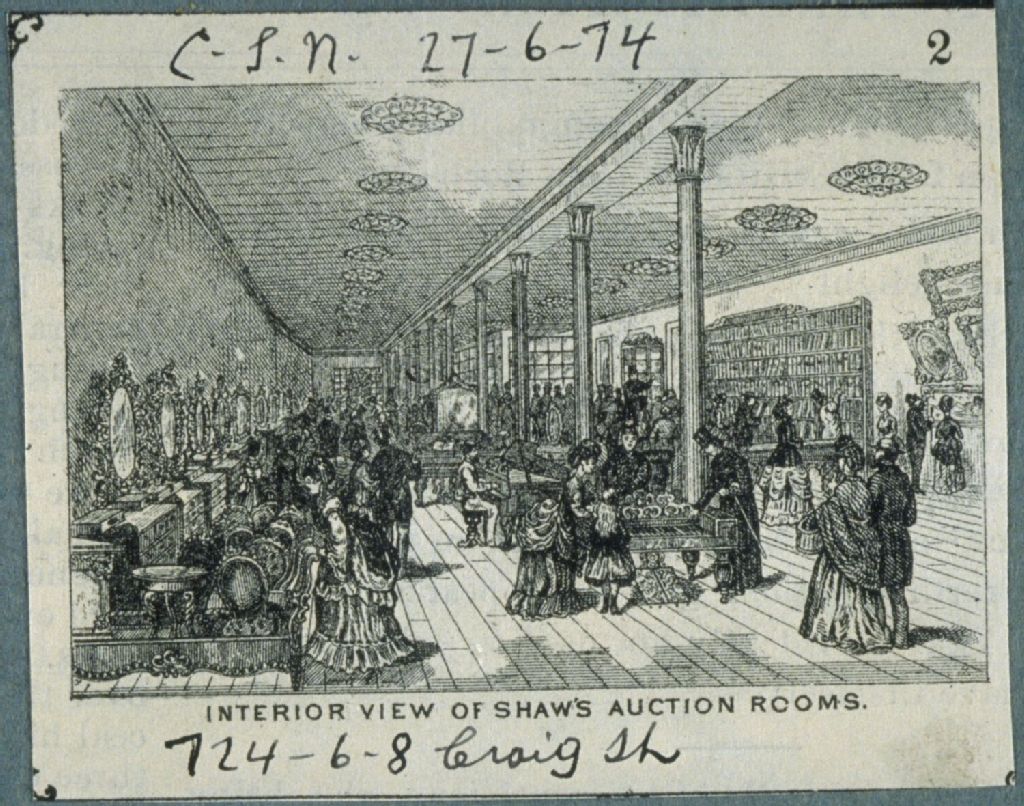 C-I.N. 27-6-74 2
INTERIOR VIEW OF SHAW'S AUCTION ROOMS.
724-6-8 Craig St